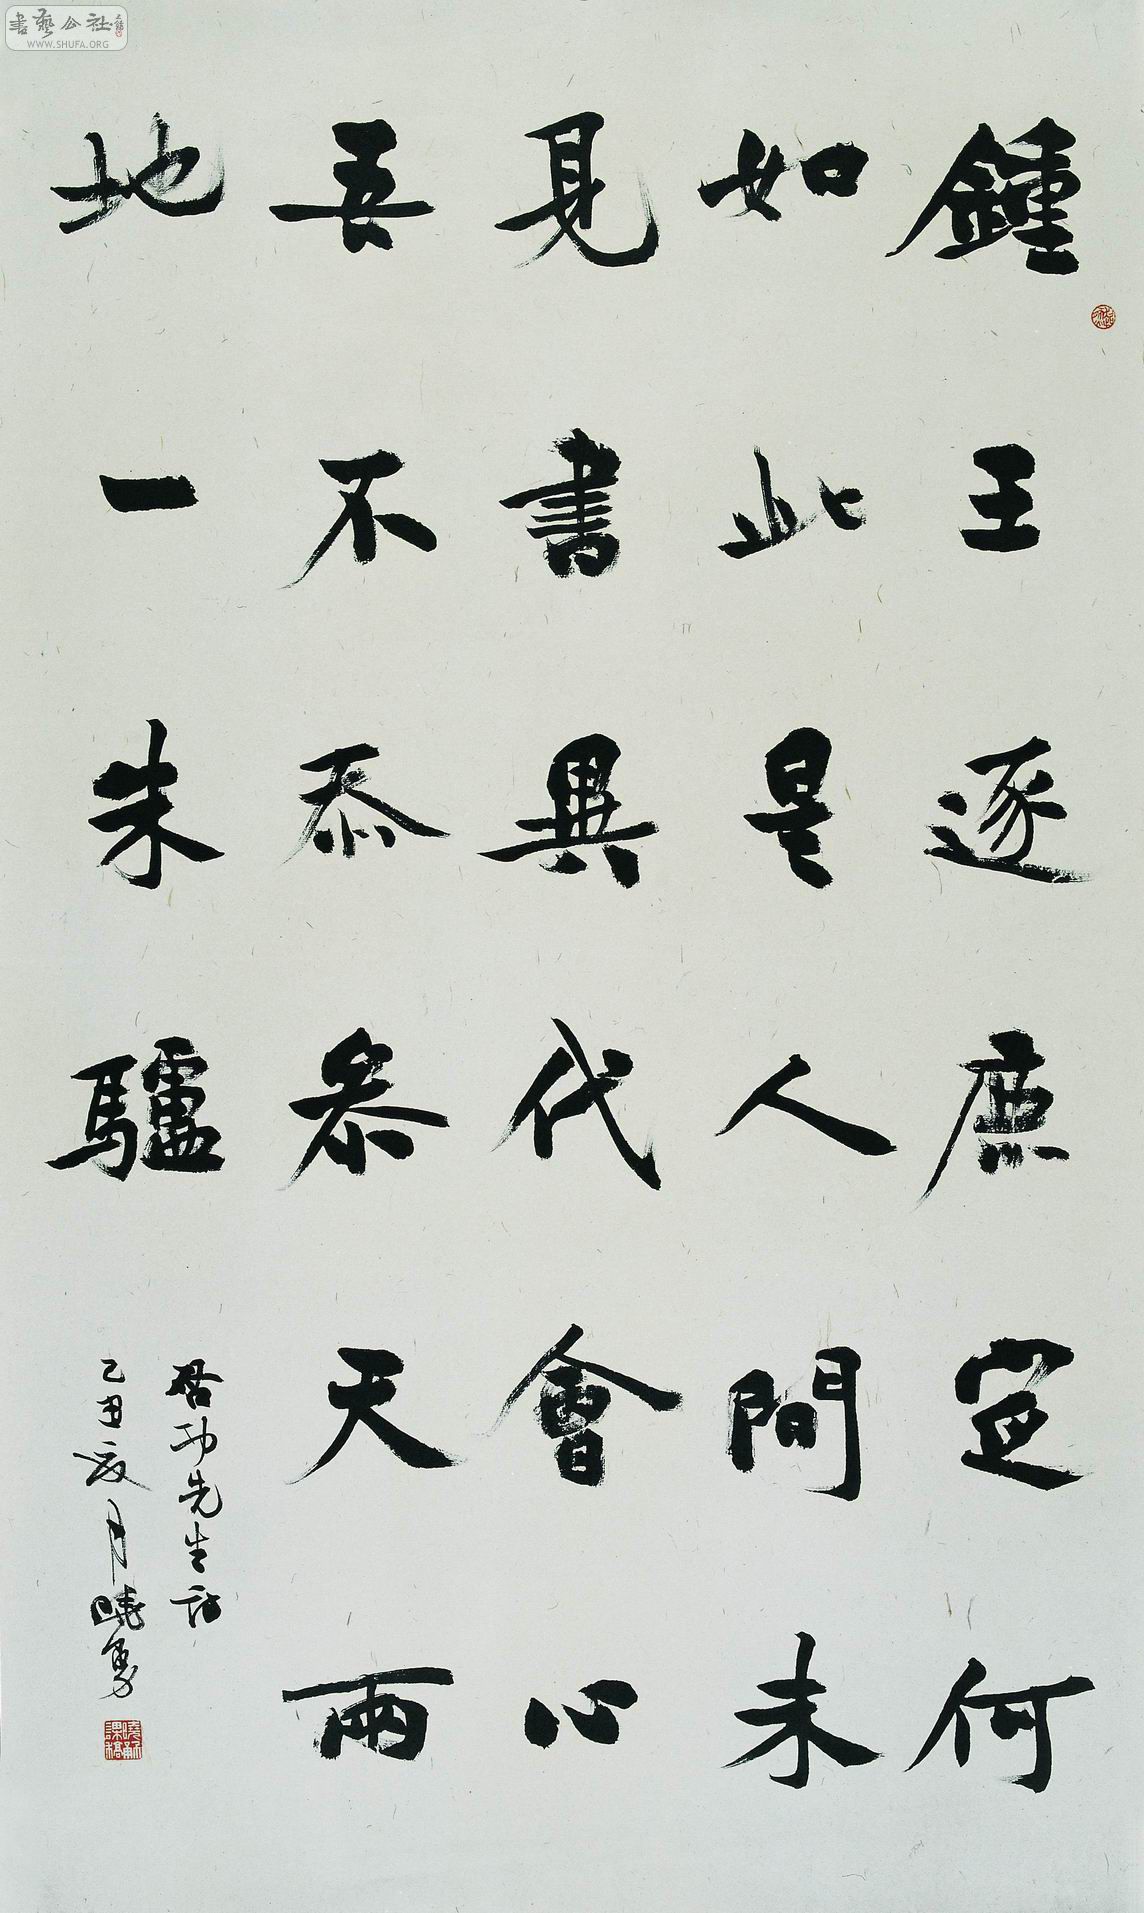 書藝公社
WWW.SHUFA.ORG
鍾王逐鹿定何
如此是人間未
見書異代會心
吾不忝參天兩
地一朱驢
啓功先生詩
己丑夏月曉勇